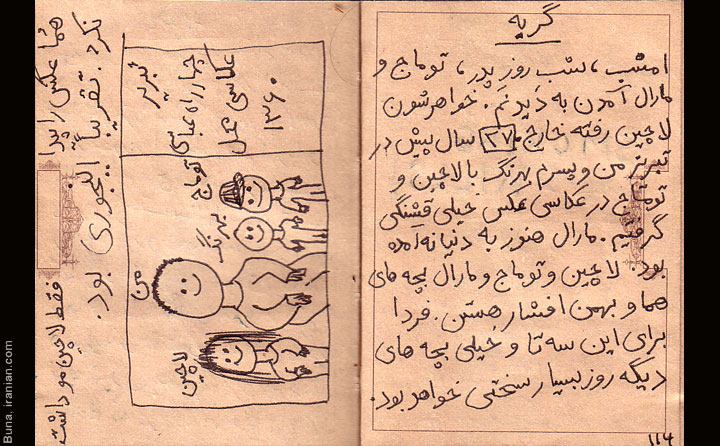 گریه
امشب، شب روز پدر، توماج و
مارال آمدن به دیدنم. خواهرشون
لاچین رفته خارج. ۲۷ سال پیش در
تبریز من و پسرم بهرنگ با لاچین و
توماج در عکاسی عکس خیلی قشنگی
گرفتیم. مارال هنوز به دنیا نه آمده
بود. لاچین و توماج و مارال بچه های
هما و بهمن افشار هستن. فردا
برای این سه تا و خیلی بچه های
دیگه روز بسیار سختی خواهد بود.
۱۱۴
هما عکس را پیدا
نکرد. تقریباً اینجوری بود.
فقط لاچین مو داشت
تبریز
چهارراه عباسی
عکاسی عمل
۱۳۶۰
توماج
بهرنگ
من
لاچین
Buna, iranian.com